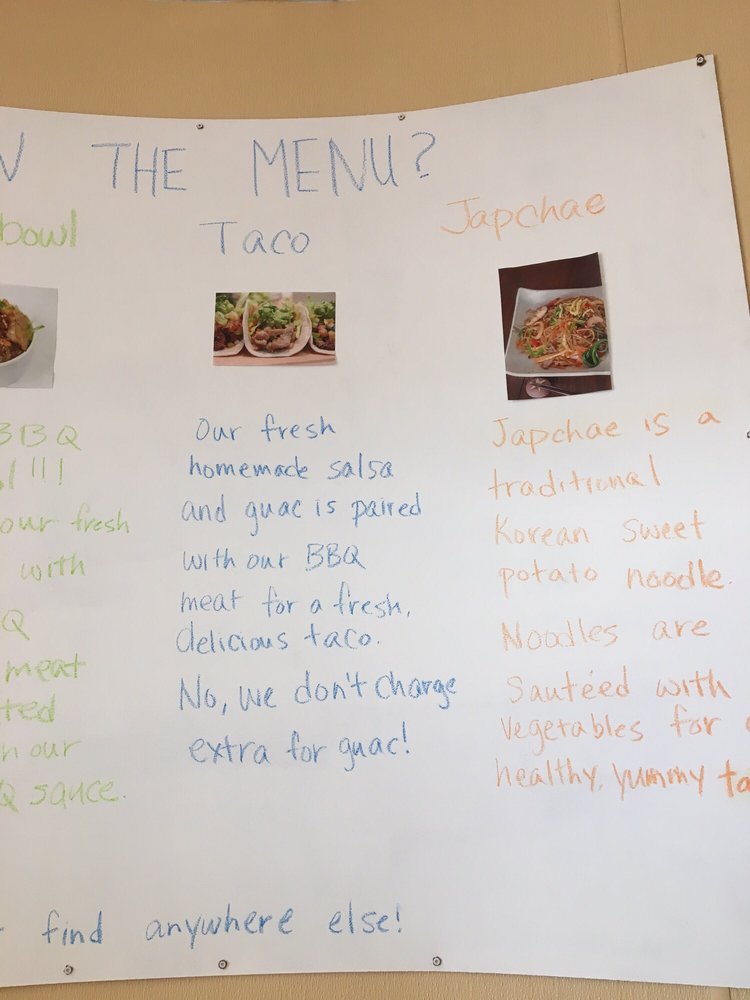 THE MENU?
bowl
BBQ
!!!
our fresh
with
Q
meat
ted
our
Q sauce.
Taco
Our fresh
homemade salsa
and guac is paired
with our BBQ
meat for a fresh,
delicious taco.
No, we don't charge
extra for guac!
Japchae
Japchae is a
traditional
Korean sweet
potato noodle.
Noodles are
Sautéed with
vegetables for
healthy, yummy ta
find anywhere else!